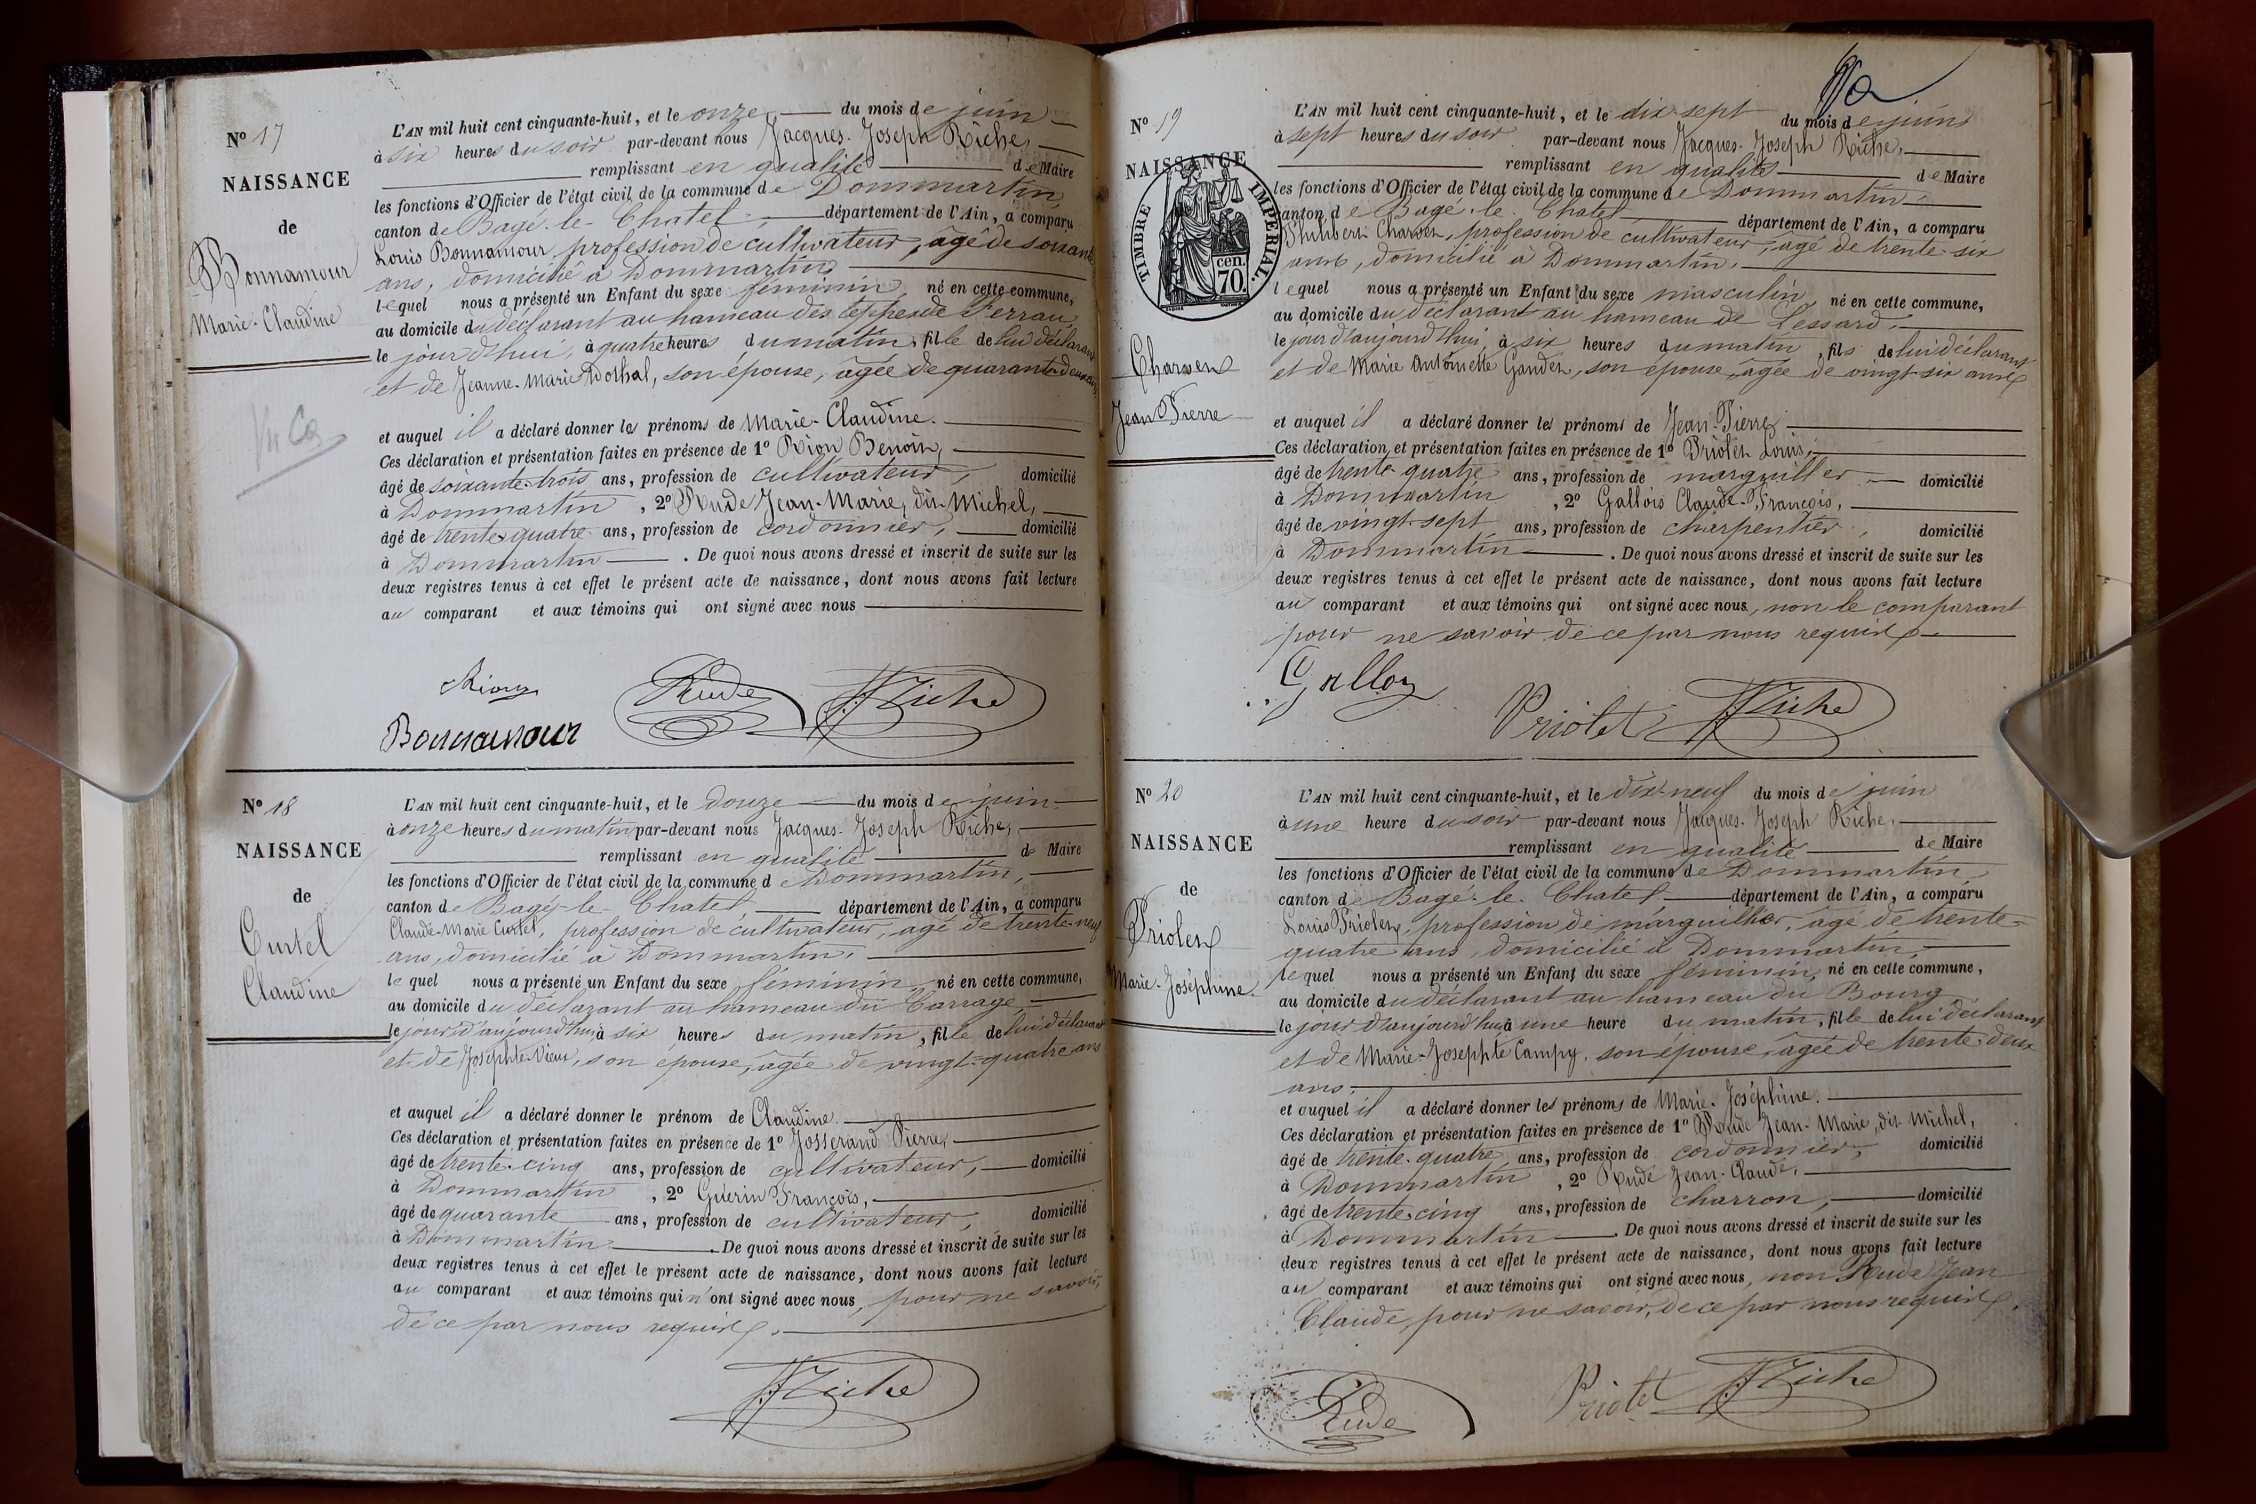 N° 17
NAISSANCE
de
Bonnamour
Marie-Claudine
L'AN mil huit cent cinquante-huit, et le onze du mois de juin
à six heures du soir par-devant nous Jacques-Joseph Riche,
remplissant en qualité de Maire
les fonctions d'Officier de l'état civil de la commune de Dommartin,
canton de Bagé-le-Chatel département de l'Ain, a comparu
Louis Bonnamour, profession de cultivateur, âgé de soixante
ans, domicilié à Dommartin,
lequel nous a présenté un Enfant du sexe féminin, né en cette commune,
au domicile du déclarant au hameau des teppes de Perrau,
le jour d'hui, à quatre heures du matin, fille de lui déclarant
et de Jeanne-Marie Dothal, son épouse, âgée de quarante-deux ans,
et auquel il a déclaré donner les prénoms de Marie-Claudine.
Ces déclaration et présentation faites en présence de 1° Rion Benoit,
âgé de soixante-trois ans, profession de cultivateur, domicilié
à Dommartin, 2° Rude Jean-Marie, dit Michel,
âgé de trente-quatre ans, profession de cordonnier, domicilié
à Dommartin. De quoi nous avons dressé et inscrit de suite sur les
deux registres tenus à cet effet le présent acte de naissance, dont nous avons fait lecture
au comparant et aux témoins qui ont signé avec nous
Rion Rude JJRiche
Bonnamour
N° 18
NAISSANCE
de
Curtel
Claudine
L'AN mil huit cent cinquante-huit, et le douze du mois de juin
à onze heures du matin par-devant nous Jacques-Joseph Riche,
remplissant en qualité de Maire
les fonctions d'Officier de l'état civil de la commune de Dommartin,
canton de Bagé-le-Chatel département de l'Ain, a comparu
Claude-Marie Curtel, profession de cultivateur, âgé de trente-neuf
ans, domicilié à Dommartin,
lequel nous a présenté un Enfant du sexe féminin, né en cette commune,
au domicile du déclarant au hameau du Carriage,
le jour d'aujourd'hui, à six heures du matin, fille de lui déclarant
et de Josephte Vieux, son épouse, âgée de vingt-quatre ans
et auquel il a déclaré donner le prénom de Claudine.
Ces déclaration et présentation faites en présence de 1° Josserand Pierre,
âgé de trente-cinq ans, profession de cultivateur, domicilié
à Dommartin, 2° Guérin François,
âgé de quarante ans, profession de cultivateur, domicilié
à Dommartin. De quoi nous avons dressé et inscrit de suite sur les
deux registres tenus à cet effet le présent acte de naissance, dont nous avons fait lecture
au comparant et aux témoins qui n'ont signé avec nous, pour ne savoir,
de ce par nous requis.
JJRiche
N° 19
NAISSANCE
TIMBRE IMPERIAL.
cen.
70.
Charven
Jean Pierre
L'AN mil huit cent cinquante-huit, et le dix-sept du mois de juin
à sept heures du soir par-devant nous Jacques-Joseph Riche,
remplissant en qualité de Maire
les fonctions d'Officier de l'état civil de la commune de Dommartin,
canton de Bagé-le-Chatel département de l'Ain, a comparu
Philibert Charven, profession de cultivateur, âgé de trente-six
ans, domicilié à Dommartin,
lequel nous a présenté un Enfant du sexe masculin, né en cette commune,
au domicile du déclarant au hameau de Lessard,
le jour d'aujourd'hui, à six heures du matin, fils de lui déclarant
et de Marie Antoinette Gauden, son épouse, âgée de vingt-six ans
et auquel il a déclaré donner les prénoms de Jean-Pierre
Ces déclaration et présentation faites en présence de 1° Priolet Louis,
âgé de trente-quatre ans, profession de marguiller domicilié
à Dommartin, 2° Gallois Claude-François,
âgé de vingt-sept ans, profession de charpentier, domicilié
à Dommartin. De quoi nous avons dressé et inscrit de suite sur les
deux registres tenus à cet effet le présent acte de naissance, dont nous avons fait lecture
au comparant et aux témoins qui ont signé avec nous, non le comparant
pour ne savoir de ce par nous requis.
Galloy Priolet JJRiche
N° 20
NAISSANCE
de
Priolet
Marie-Joséphine
L'AN mil huit cent cinquante-huit, et le dix-neuf du mois de juin
à une heure du soir par-devant nous Jacques-Joseph Riche,
remplissant en qualité de Maire
les fonctions d'Officier de l'état civil de la commune de Dommartin,
canton de Bagé-le-Chatel département de l'Ain, a comparu
Louis Priolet, profession de marguillier, âgé de trente-
quatre ans, domicilié à Dommartin,
lequel nous a présenté un Enfant du sexe féminin, né en cette commune,
au domicile du déclarant au hameau du Bourg
le jour d'aujourd'hui, à une heure du matin, fille de lui déclarant
et de Marie-Josephte Campy, son épouse, âgée de trente-deux
ans.
et auquel il a déclaré donner les prénoms de Marie-Joséphine.
Ces déclaration et présentation faites en présence de 1° Rude Jean-Marie, dit Michel,
âgé de trente-quatre ans, profession de cordonnier, domicilié
à Dommartin, 2° Rude Jean-Claude,
âgé de trente-cinq ans, profession de charron, domicilié
à Dommartin. De quoi nous avons dressé et inscrit de suite sur les
deux registres tenus à cet effet le présent acte de naissance, dont nous avons fait lecture
au comparant et aux témoins qui ont signé avec nous, non Rude Jean
Claude, pour ne savoir, de ce par nous requis.
Rude Priolet JJRiche